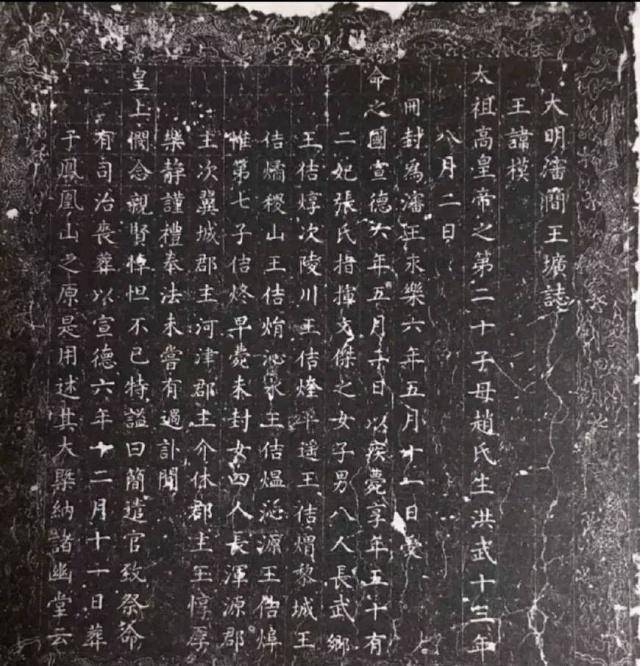 大明瀋簡王壙誌
王諱模
太祖高皇帝之第二十子母趙氏生洪武十三年
八月二日
冊封為瀋王永樂六年五月十一日受
命之國宣德六年五月日以疾薨享年五十有
二妃張氏指揮文傑之女子男八人長武鄉
王佶焞次陵川王佶平遥王佶煟黎城王
佶燏稷山王佶焇沁水王佶熅沁源王佶焯
惟第七子佶炵早薨未封女四人長渾源郡
主次翼城郡主河津郡主介休郡主王惇厚
樂静謹禮奉法未嘗有過訃聞
皇上憫念親賢悼怛不已特謚曰簡遣官致祭命
有司治喪葬以宣德六年十二月十一日葬
于鳳凰山之原是用述其大槩納諸幽堂云